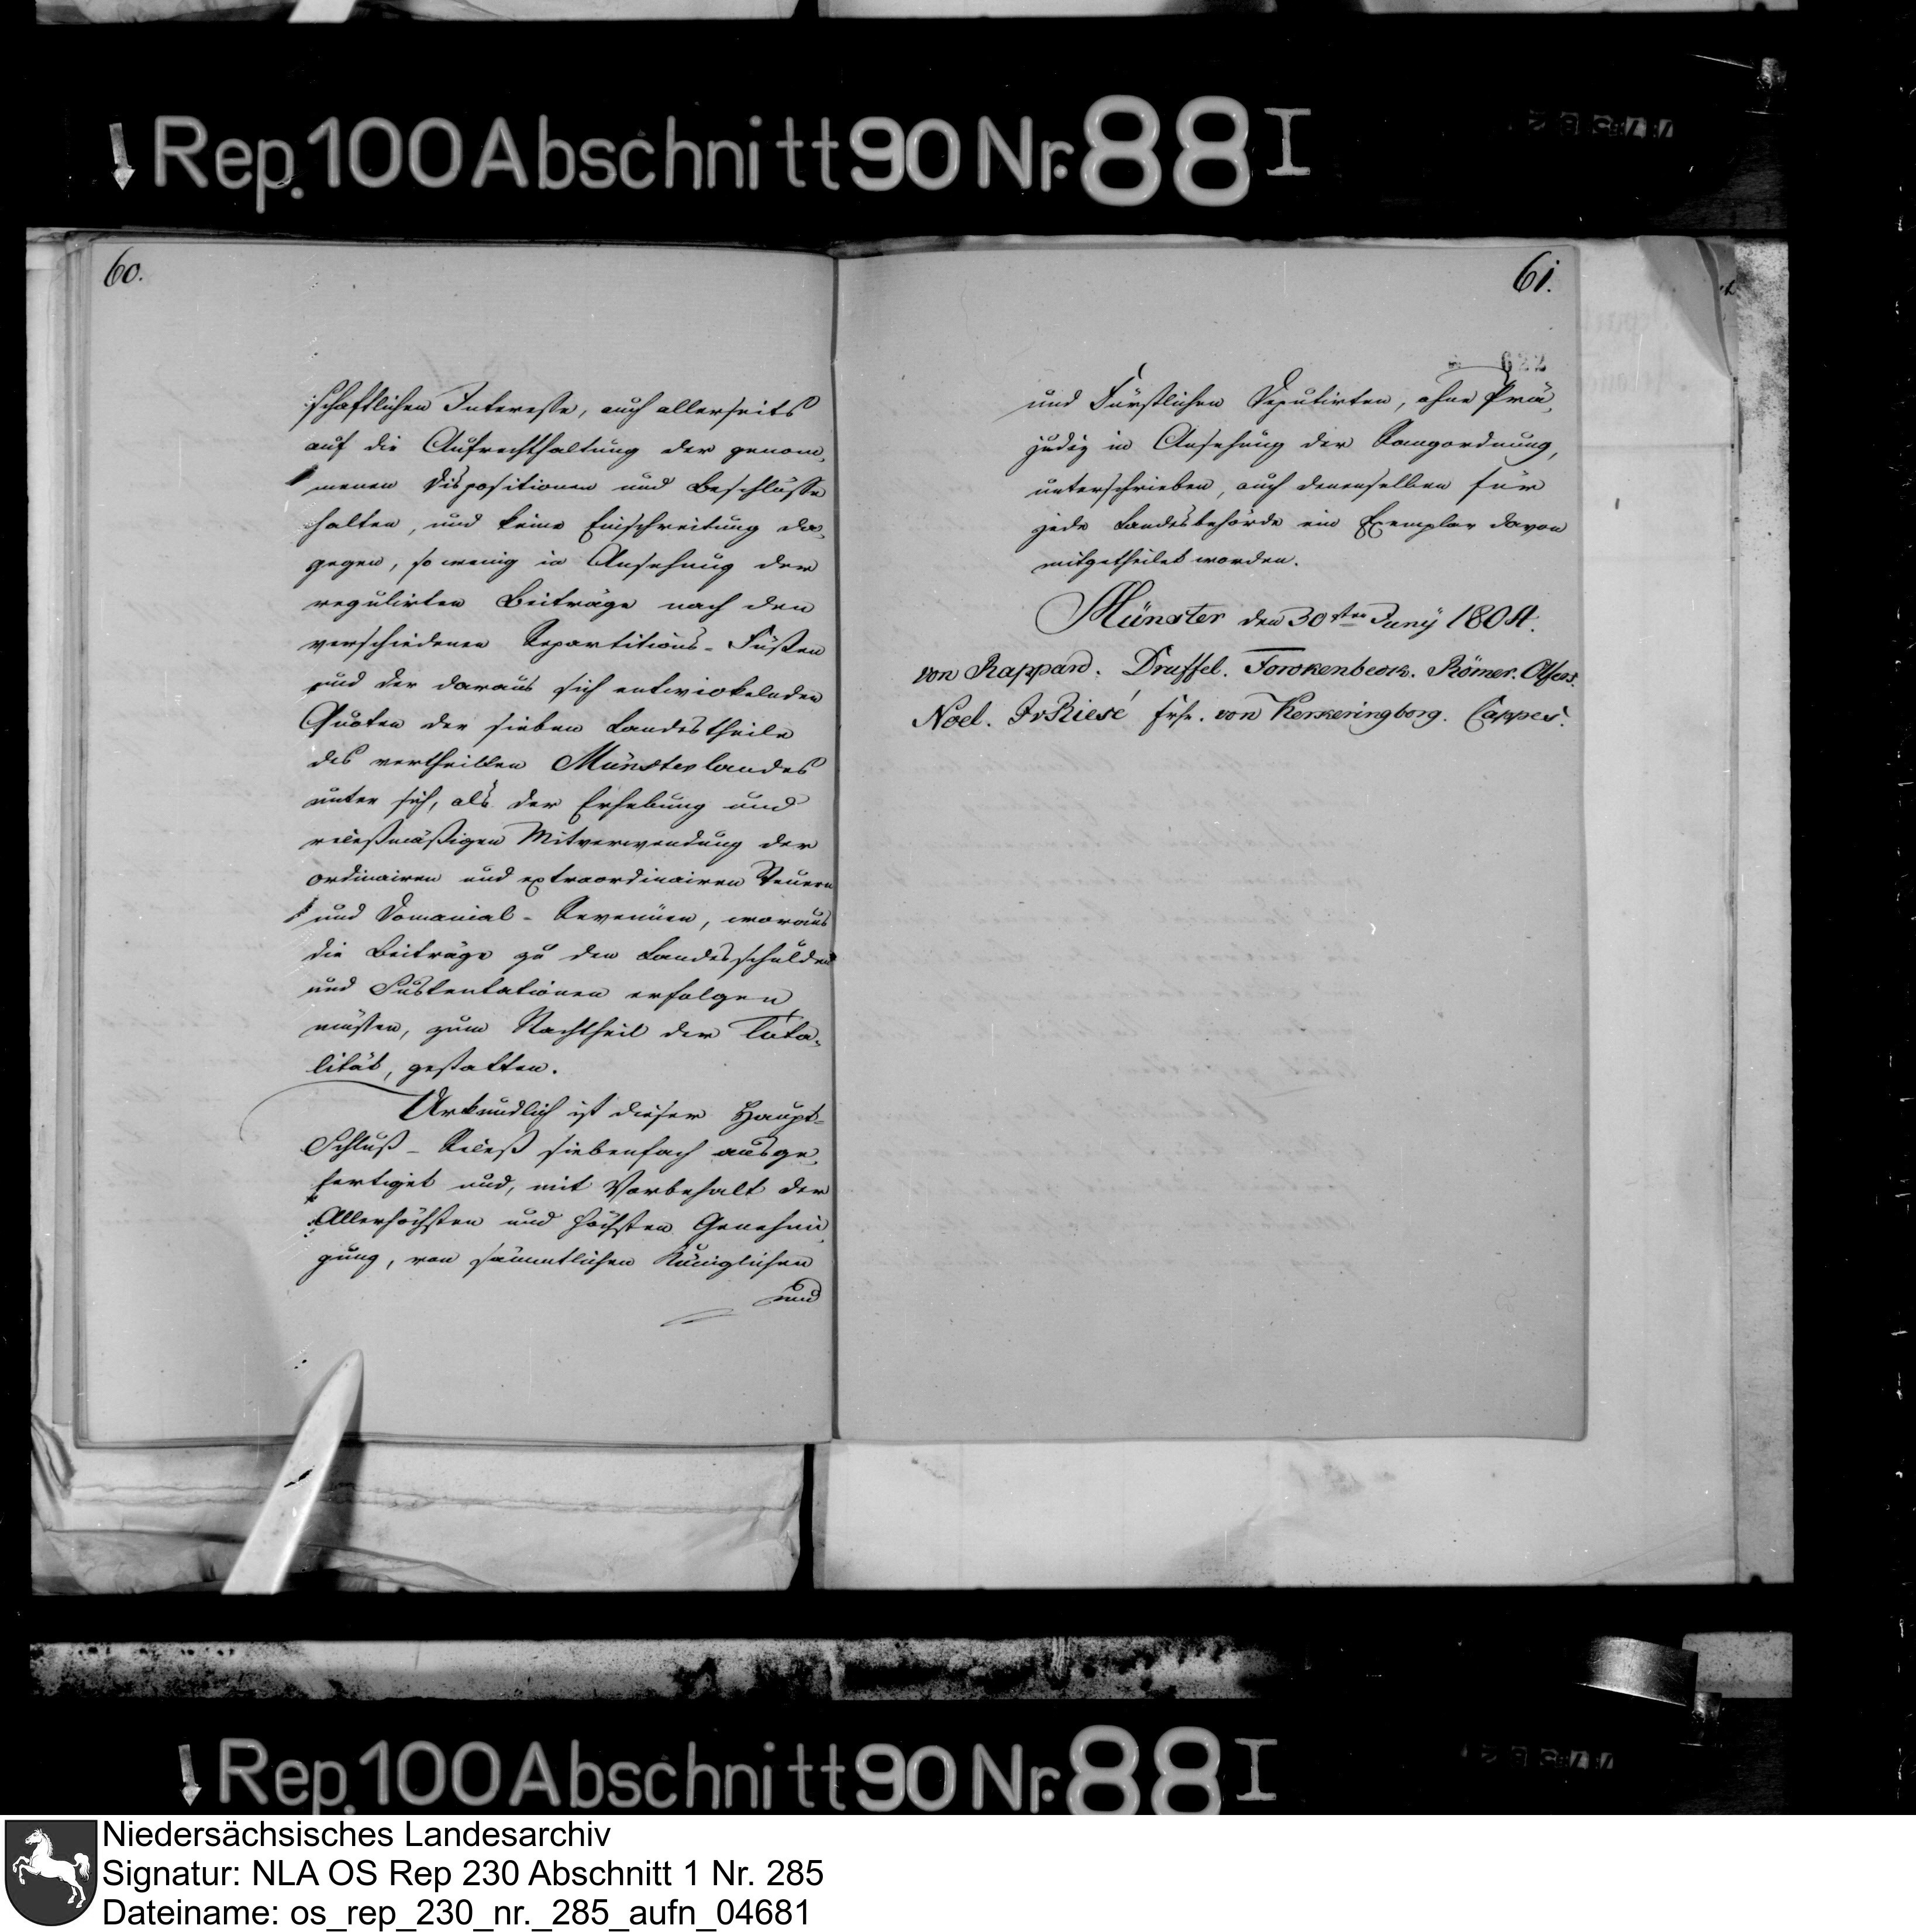 Rep. 100 Abschnitt 90 Nr. 88 I
60.
schaftlichen Interesse, auch allerseits
auf die Aufrechthaltung der genom,
menen Dispositionen und Beschlüsse
halten, und keine Einschreitung da,
gegen, so wenig in Ansehung der
regulirten Beiträge nach den
verschiedenen Repartitions-Füßen
und der daraus sich entwickelnden
Quoten der sieben Landestheile
des vertheilten Münsterlandes
unter sich, als der Erhebung und
receßmäßigen Mitverwendung der
ordinairen und extraordinairen Steuern
und Domanial-Revenüen, woraus
die Beiträge zu den Landesschulden
und Sustentationen erfolgen
müssen, zum Nachtheil der Tota,
lität, gestatten.
Urkundlich ist dieser Haupt-
Schluß-Receß siebenfach ausge,
fertiget und, mit Vorbehalt der
Allerhöchsten und Höchsten Genehmi,
gung, von sämmtlichen Königlichen
und
61.
622
und Fürstlichen Deputirten, ohne Prä,
judiz in Ansehung der Rangordnung,
unterschrieben, auch denenselben für
jede Landesbehörde ein Exemplar davon
mitgetheilet worden.
Münster den 30sten Juny 1804.
von Rappard. Druffel. Forckenbeck. Römer. Olfers.
Noel. Riesé Frhr. von Kerkeringborg. Cappes.
Rep. 100 Abschnitt 90 Nr. 88 I
Niedersächsisches Landesarchiv
Signatur: NLA OS Rep 230 Abschnitt 1 Nr. 285
Dateiname: os_rep_230_nr._285_aufn_04681